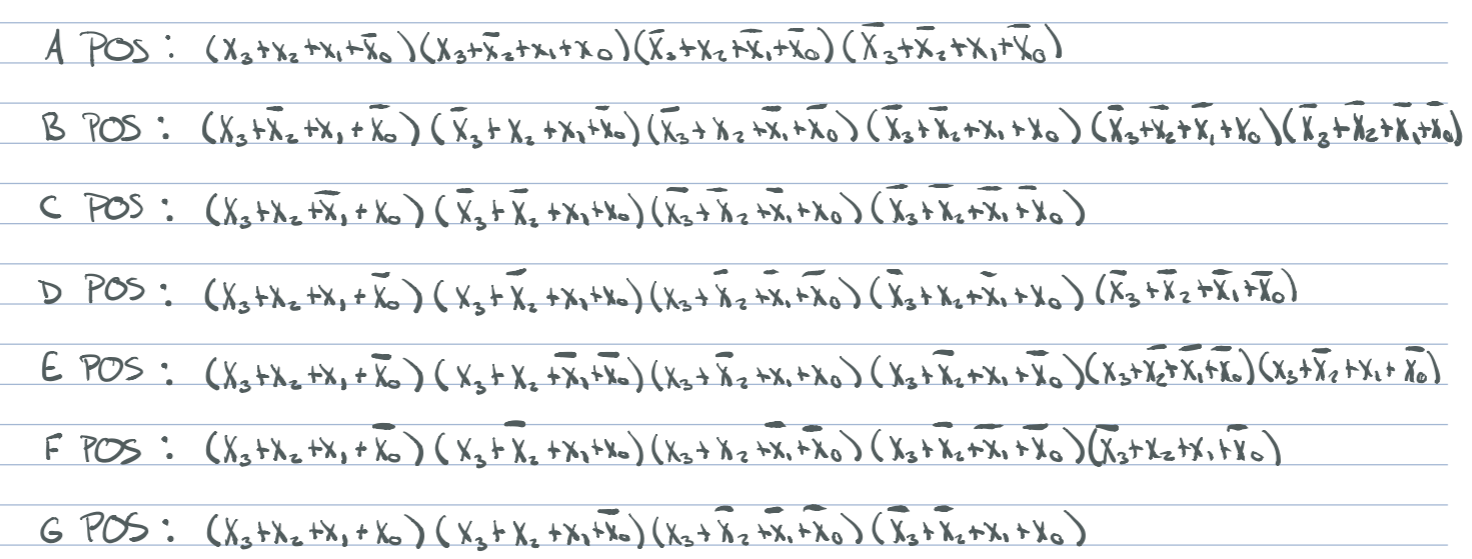 A POS : (X₃+X₂+X₁+X̄₀)(X₃+X̄₂+X₁+X₀)(X̄₃+X₂+X̄₁+X̄₀)(X̄₃+X̄₂+X₁+X̄₀)
B POS : (X₃+X̄₂+X₁+X̄₀)(X̄₃+X₂+X₁+X̄₀)(X̄₃+X₂+X̄₁+X̄₀)(X̄₃+X̄₂+X₁+X₀)(X̄₃+X̄₂+X̄₁+X₀)(X̄₃+X̄₂+X̄₁+X̄₀)
C POS : (X₃+X₂+X̄₁+X₀)(X̄₃+X̄₂+X₁+X₀)(X̄₃+X̄₂+X̄₁+X₀)(X̄₃+X̄₂+X̄₁+X̄₀)
D POS : (X₃+X₂+X₁+X̄₀)(X₃+X̄₂+X₁+X₀)(X₃+X̄₂+X̄₁+X̄₀)(X̄₃+X₂+X̄₁+X₀)(X̄₃+X̄₂+X̄₁+X̄₀)
E POS : (X₃+X₂+X₁+X̄₀)(X₃+X₂+X̄₁+X̄₀)(X₃+X̄₂+X₁+X₀)(X₃+X̄₂+X₁+X̄₀)(X₃+X̄₂+X̄₁+X̄₀)(X₃+X̄₂+X₁+X̄₀)
F POS : (X₃+X₂+X₁+X̄₀)(X₃+X̄₂+X₁+X₀)(X₃+X₂+X̄₁+X̄₀)(X₃+X̄₂+X̄₁+X̄₀)(X̄₃+X₂+X₁+X̄₀)
G POS : (X₃+X₂+X₁+X₀)(X₃+X₂+X₁+X̄₀)(X₃+X̄₂+X̄₁+X̄₀)(X̄₃+X̄₂+X₁+X₀)